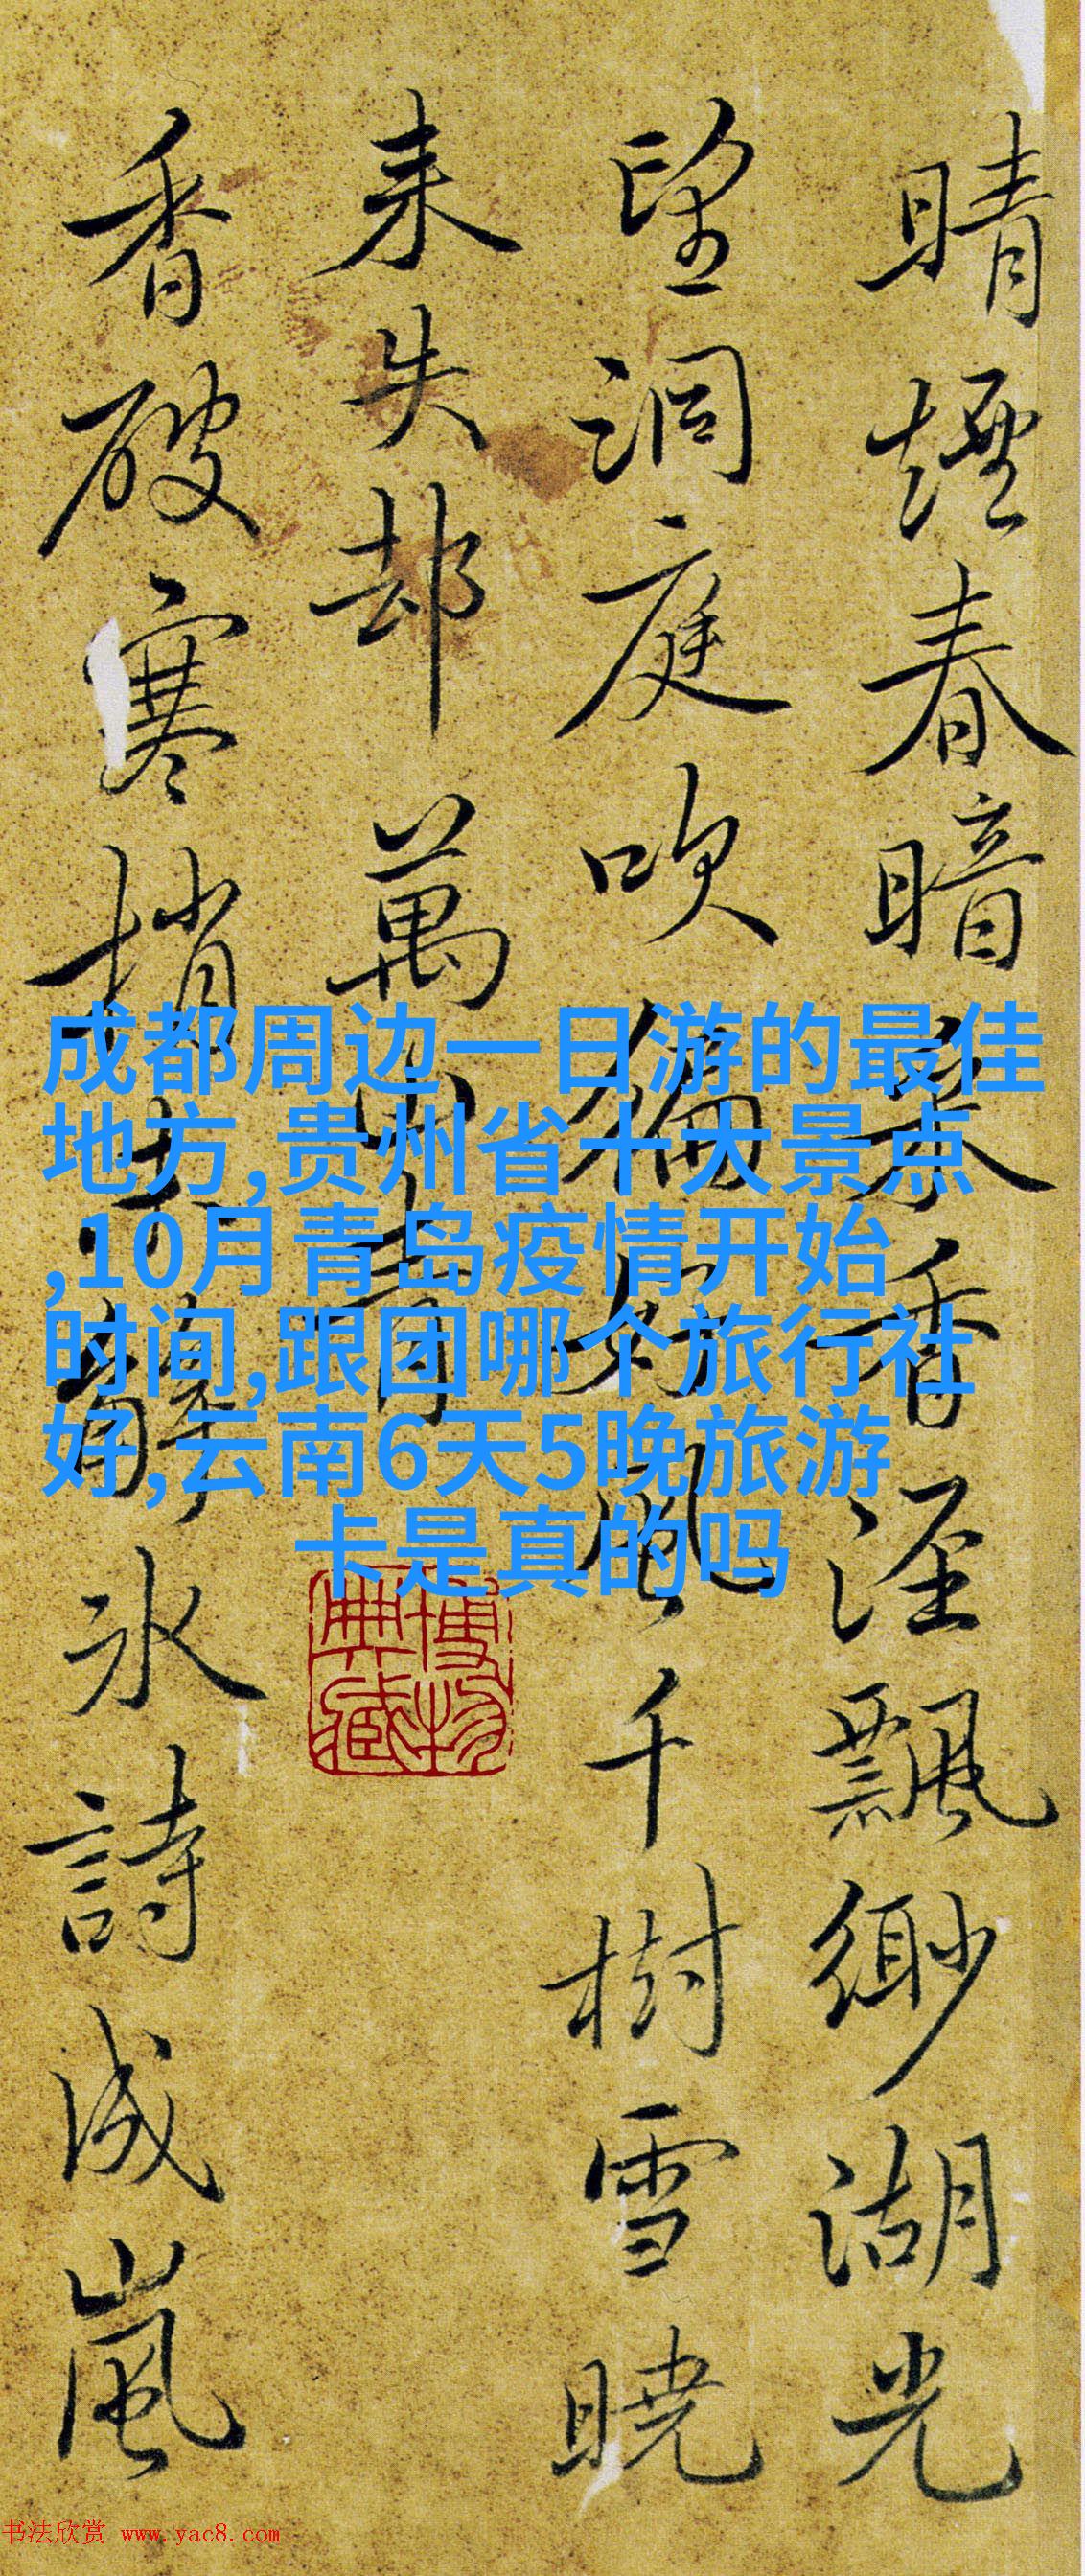 晴煙春暗香溼飄緲湖光
望洞庭吹徧好風千樹雪曉
来失却萬山青
香破寒梢解冰詩成嵐
成都周边一日游的最佳
地方,贵州省十大景点
,10月青岛疫情开始
时间,跟团哪个旅行社
好,云南6天5晚旅游
卡是真的吗
博物
典藏
书法欣赏 www.yac8.com